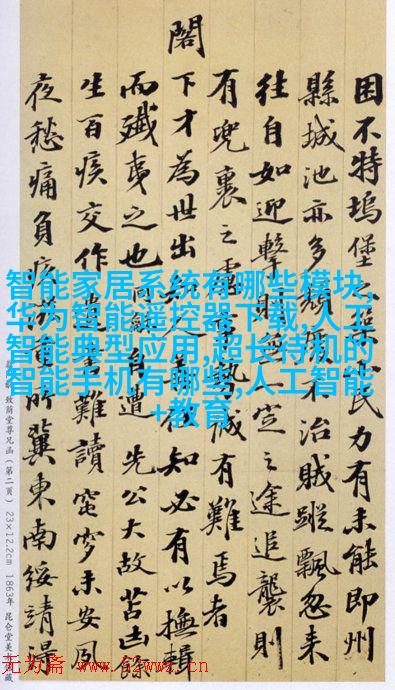 困不特塢堡民力有未能即州
縣城池亦多頹廢不治賊蹤飄忽来
往自如迎擊則一定之途追襲則
有兜裹之勢誠有難焉者
閣
下才為世出知必有以撫輯
而殲夷之也同龢自遭先公大故苦凷餘
生百疾交作難讀夢未安夙
夜愁痛負疚滋所冀東南綏靖得
智能家居系统有哪些模块,
华为智能遥控器下载,人工
智能典型应用,超长待机的
智能手机有哪些,人工智能
+教育
致荫堂尊兄函(第二頁) 23×12.2cm 1863年 昆仑堂美术馆藏
无为斋 www.52wwz.cn